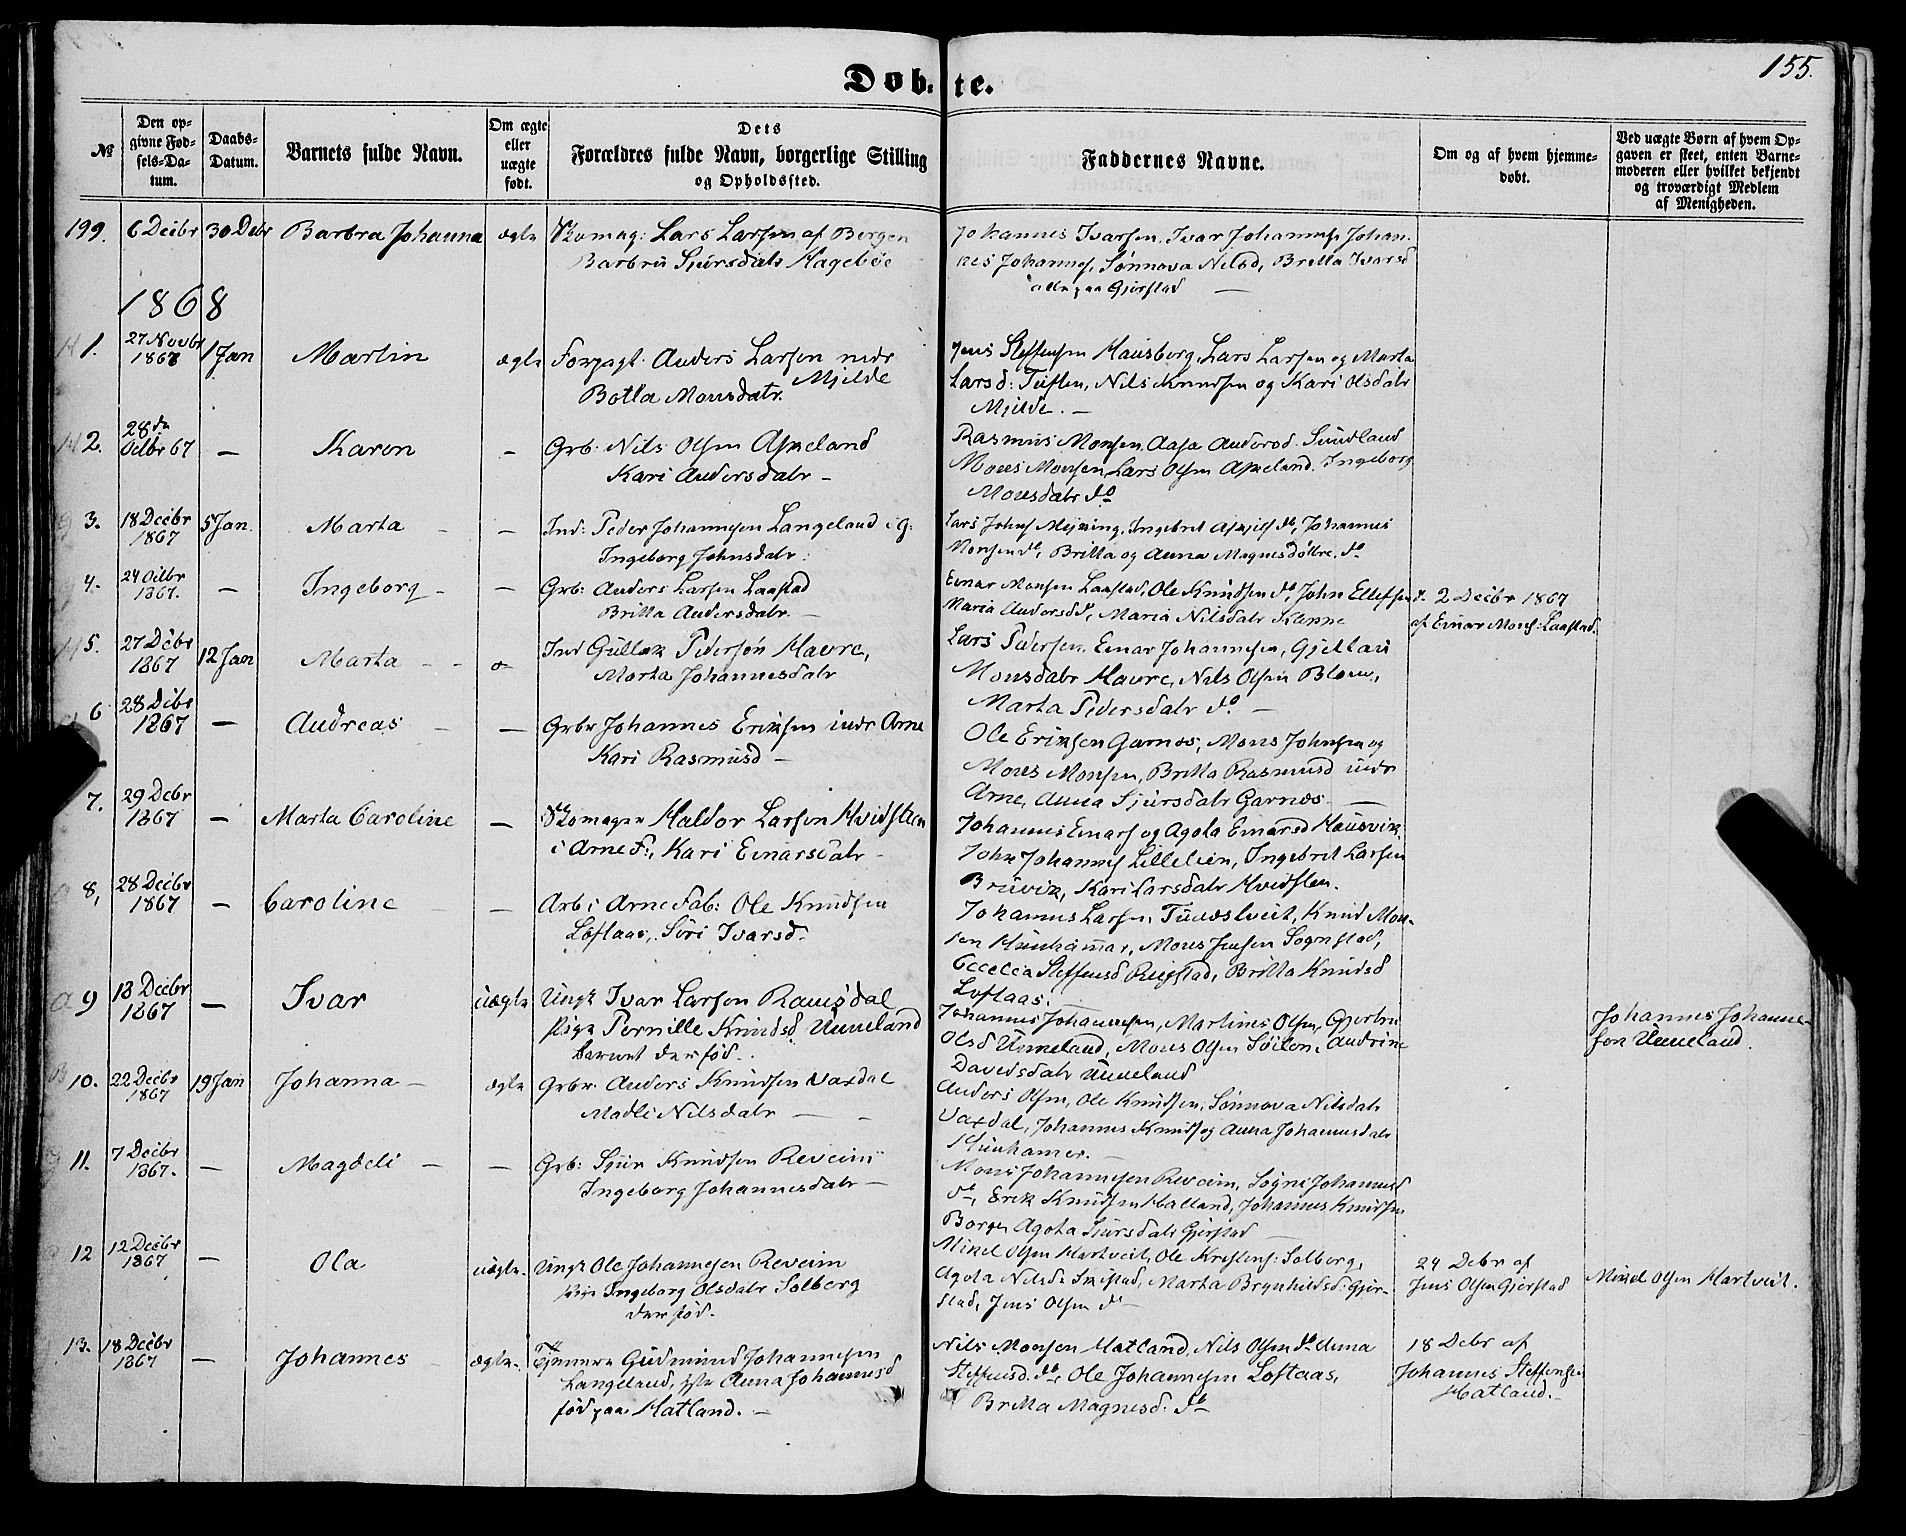 155.
Døb-te.
№
Den op-
givne Fød-
sels-Da-
tum.
Daabs-
Datum.
Barnets fulde Navn.
Om ægte
eller
uægte
født.
Dets
Forældres fulde Navn, borgerlige Stilling
og Opholdssted.
Faddernes Navne.
Om og af hvem hjemme-
døbt.
Ved uægte Børn af hvem Op-
gaven er skeet, enten Barne-
moderen eller hvilket bekjendt
og troværdigt Medlem
af Menigheden.
199. 6 Decbr 30 Debr Barbra Johanna ægte Skomag: Lars Larsen af Bergen
Barbra Sjursdatr Hagebøe
Johannes Ivarsen, Ivar Johannesś Johan-
nes Johannesś, Sønnova Nilsd, Britta Ivarsd
alle paa Gjerstad —
1868
1. 27 Novbr 1867 1 Jan Martin ægte Forpagt. Anders Larsen nedr
Mjelde
Botla Monsdatr.
Jens Steffensen Hausberg, Lars Larsen og Marta
Larsd: Tuften, Nils Knudsen og Kari Olsdatr
Mjelde. —
2. 28de Octbr 67 — Karen — Grb: Nils Olsen Aspeland
Kari Andersdatr —
Rasmus Monsen, Aasa Andersd. Sundland
Mons Monsen, Lars Olsen Aspeland. Ingeborg
Monsdatr do
3. 18 Decbr 1867 5 Jan. Marta — — Ind: Peder Johannesen Langeland i G:
Ingeborg Johnsdatr:
Lars Johns Mjening, Ingebret do, Johannes
Monsen do, Britta og Anna Magnesdøttre. do
4. 24 Octbr 1867. — Ingeborg — — Grb: Anders Larsen Laastad
Britta Andersdatr. —
Einar Monsen Laastad, Ole Knudsen do, John Ellefsen do
Maria Andersd do, Maria Nilsdatr
2 Decbr 1867
af Einar Mons: Laastad.
5. 27 Debr 1867 12 Jan Marta — — Ind Gullak Pedersøn Havre,
Marta Johannesdatr
Lars Pedersen. Einar Johannesen, Gjellaú
Monsdatr Havre, Nils Olsen Blom,
Marta Pedersdatr do —
6 28 Debr 1867 — Andreas — — Grbr Johannes Eriksen indr Arne
Kari Rasmusd —
Ole Eriksen Garnes, Mons Johnsen og
Mons Monsen, Britta Rasmusd indr
Arne, Anna Sjursdatr Garnes. —
7. 29 Debr 1867 — Marta Caroline — Skomager Haldor Larsen Hvidsteen
i Arne F:, Kari Einarsdatr —
Johannes Einars og Agota Einarsd Hausvik
John Johannes Lilletien, Ingebret Larsen
Bruvik, Kari Larsdatr Hvidsten.
8, 28 Decbr 1867 — Caroline — — Arb: i Arne Fab: Ole Knudsen
Loftaas, Siri Ivarsd.
Johannes Larsen, Tunestveit, Knud Mon-
sen Munkhammar, Mons Jensen Sognstad,
Cecelia Steffensd Reigstad, Britta Knudsd
Loftaas.
9 13 Decbr 1867 — Ivar uægte Ungk Ivar Larsen Ramsdal
Pige Pernille Knudsd Unneland
barnet der fød.
Johannes Johannesen, Martines Olsen, Gjertru
Olsd Unneland, Mons Olsen Andrine
Davidsdatr Unneland
Johannes Johanne-
sen Unneland.
10. 22 Decbr 1867 19 Jan Johanna — ægte Grbr. Anders Knudsen Vaxdal
Madli Nilsdatr —
Anders Olsen, Ole Knudsen, Sønnova Nilsdatr
Vaxdal, Johannes Knuds og Anna Johannesdatr
Munkhamer. —
11. 7 Decbr 1867. — Magdeli — — Grb: Sjur Knudsen Reveim
Ingeborg Johannesdatr —
Mons Johannesen Reveim, Sogni Johannesd
do, Erik Knudsen Hatland, Johannes Knudsen
Borge, Agota Sjursdatr Gjerstad —
12 12 Decbr 1867 — Ola uægte. Ungk Ole Johannesen Reveim
Pige Ingeborg Olsdatr Solberg
der fød.
Mikel Olsen Hartveit, Ole Kristens: Solberg,
Agota Nilsd. Marta Brynhildsd: Gjer-
stad, Jens Olsen do —
24 Debr af
Jens Olsen Gjerstad
Mikel Olsen Hartveit.
13. 18 Decbr 1867 — Johannes — ægte. Tjenere Gudmund Johannesen
Langeland, Anna Johannesd
fød paa Hatland. —
Nils Monsen Hatland, Nils Olsen do Anna
Steffensd. do, Ole Johannesen Loftaas,
Britta Magnesd. do
18 Debr af
Johannes Steffensen
Hatland. —